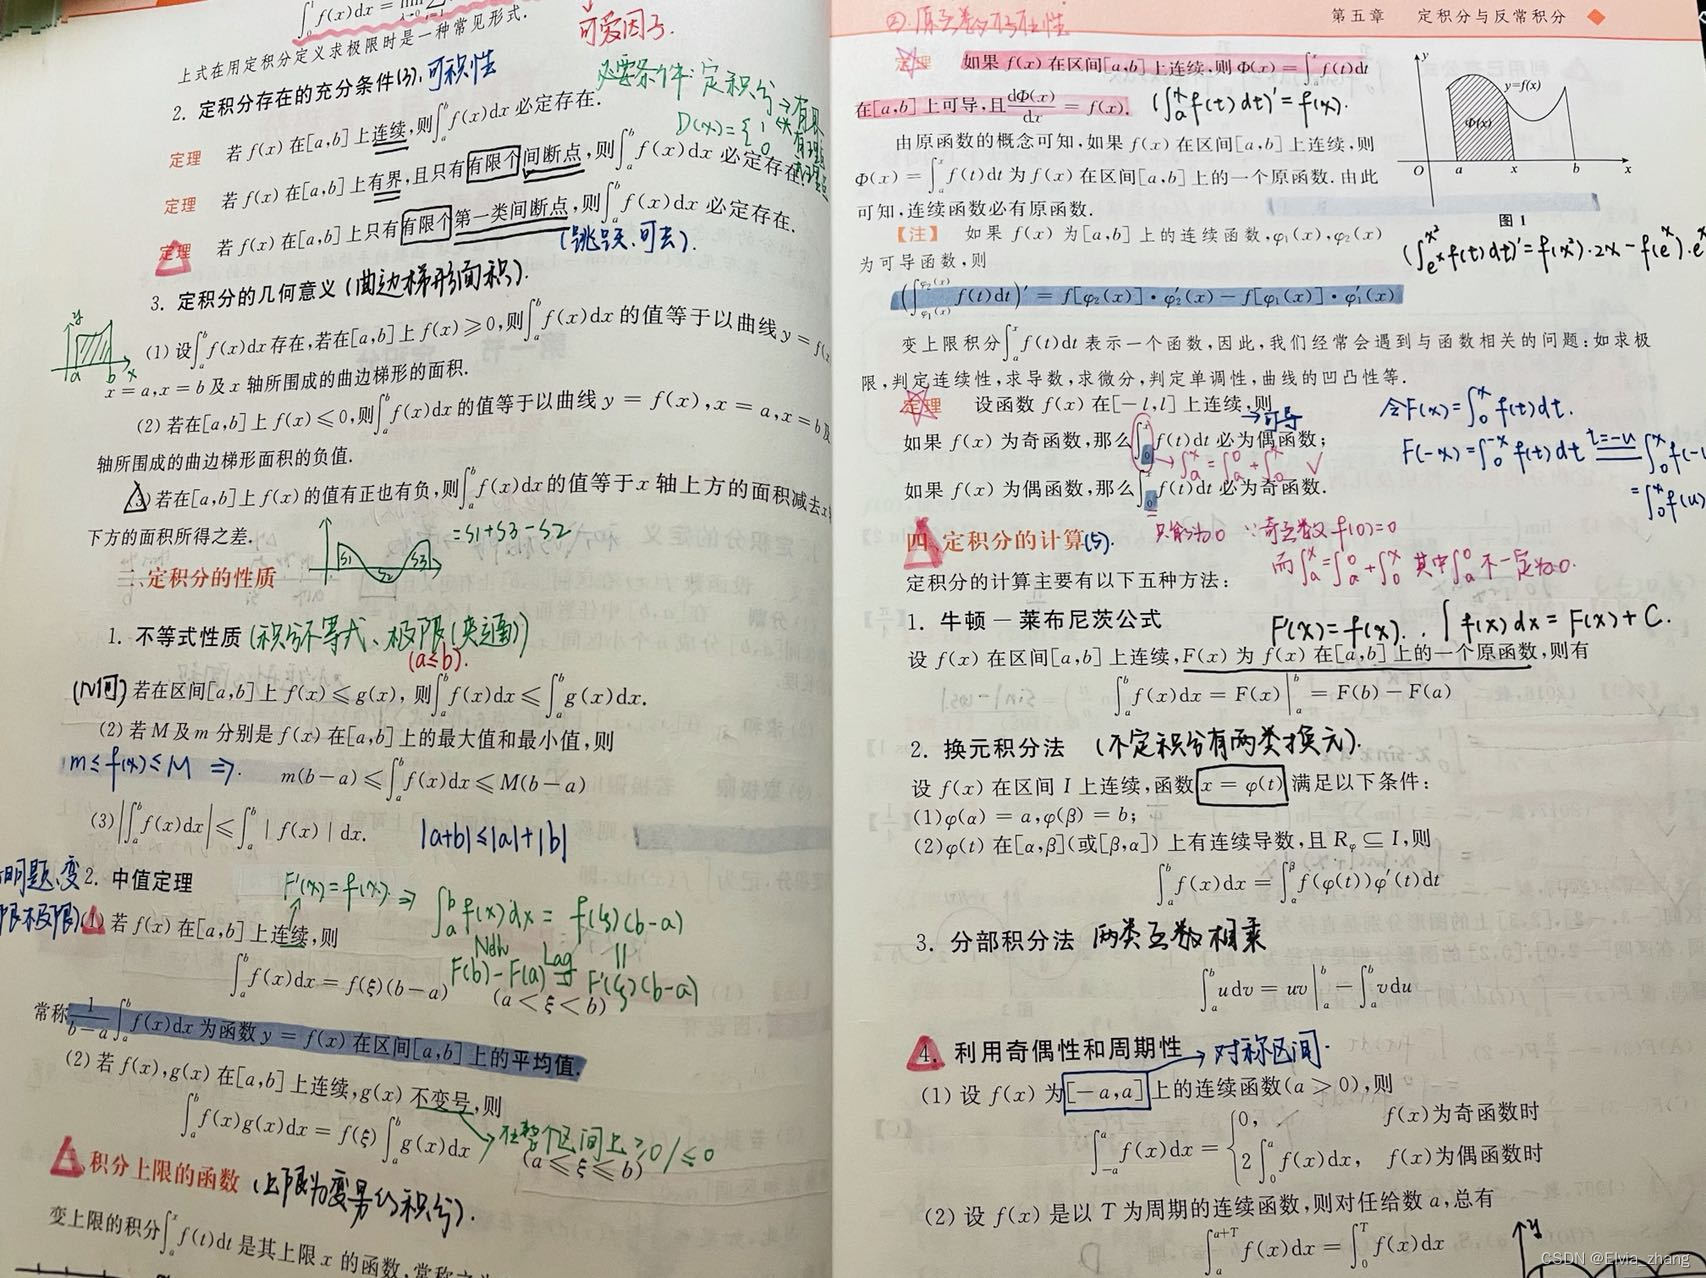 上式在用定积分定义求极限时是一种常见形式.
可爱因子.
2. 定积分存在的充分条件(3), 可积性
必要条件: 定积分→有界
定理 若 f(x) 在[a,b] 上连续,则∫_a^b f(x)dx 必定存在.
定理 若 f(x) 在[a,b] 上有界,且只有有限个间断点,则∫_a^b f(x)dx 必定存在.
定理 若 f(x) 在[a,b] 上只有有限个第一类间断点,则∫_a^b f(x)dx 必定存在.
(跳跃、可去).
3. 定积分的几何意义 (曲边梯形面积).
(1) 设∫_a^b f(x)dx 存在,若在[a,b] 上 f(x) ⩾ 0,则∫_a^b f(x)dx 的值等于以曲线 y = f(x)
x = a,x = b 及 x 轴所围成的曲边梯形的面积.
y a b x
(2) 若在[a,b] 上 f(x) ⩽ 0,则∫_a^b f(x)dx 的值等于以曲线 y = f(x),x = a,x = b 及
轴所围成的曲边梯形面积的负值.
(3) 若在[a,b] 上 f(x) 的值有正也有负,则∫_a^b f(x)dx 的值等于 x 轴上方的面积减去 x
下方的面积所得之差.
S1 S2 S3 = S1+S3-S2
二、定积分的性质
1. 不等式性质 (积分不等式、极限(夹逼))
(a≤b).
若在区间[a,b] 上 f(x) ⩽ g(x), 则∫_a^b f(x)dx ⩽ ∫_a^b g(x)dx.
(2) 若 M 及 m 分别是 f(x) 在[a,b] 上的最大值和最小值,则
m ≤ f(x) ≤ M ⇒. m(b − a) ⩽ ∫_a^b f(x)dx ⩽ M(b − a)
(3) |∫_a^b f(x)dx| ⩽ ∫_a^b | f(x) | dx. |a+b| ≤ |a|+|b|
明题、变
2. 中值定理 F'(x) = f(x). ⇒ ∫_a^b f(x)dx = f(ξ)(b-a)
限极限)
(1) 若 f(x) 在[a,b] 上连续,则
F(b)-F(a) Lag = F'(ξ)(b-a)
∫_a^b f(x)dx = f(ξ)(b − a) (a < ξ < b)
常称 1/(b − a) ∫_a^b f(x)dx 为函数 y = f(x) 在区间[a,b] 上的平均值.
(2) 若 f(x),g(x) 在[a,b] 上连续,g(x) 不变号,则
∫_a^b f(x)g(x)dx = f(ξ)∫_a^b g(x)dx (a ⩽ ξ ⩽ b)
在整个区间上 ≥0/≤0
积分上限的函数 (上限为变量的积分).
变上限的积分∫_a^x f(t)dt 是其上限 x 的函数,常称之为
第五章 定积分与反常积分
定理 如果 f(x) 在区间[a,b] 上连续,则 Φ(x) = ∫_a^x f(t)dt
在[a,b] 上可导,且 dΦ(x)/dx = f(x). (∫_a^x f(t)dt)' = f(x).
由原函数的概念可知,如果 f(x) 在区间[a,b] 上连续,则
Φ(x) = ∫_a^x f(t)dt 为 f(x) 在区间[a,b] 上的一个原函数. 由此
可知,连续函数必有原函数.
y y=f(x) Φ(x) O a x b x
图 1
【注】 如果 f(x) 为[a,b] 上的连续函数,φ₁(x),φ₂(x)
为可导函数,则
(∫_{e^x}^{x²} f(t)dt)' = f(x²)·2x − f(e^x)·e^x
(∫_{φ₁(x)}^{φ₂(x)} f(t)dt)' = f[φ₂(x)]·φ₂'(x) − f[φ₁(x)]·φ₁'(x)
变上限积分∫_a^x f(t)dt 表示一个函数,因此,我们经常会遇到与函数相关的问题:如求极
限,判定连续性,求导数,求微分,判定单调性,曲线的凹凸性等.
定理 设函数 f(x) 在[− l,l] 上连续,则
→可导
如果 f(x) 为奇函数,那么∫_0^x f(t)dt 必为偶函数;
∫_a^x = ∫_a^0 + ∫_0^x ✓
如果 f(x) 为偶函数,那么∫_0^x f(t)dt 必为奇函数.
令F(x) = ∫_0^x f(t)dt.
F(-x) = ∫_0^{-x} f(t)dt t=-u ∫_0^x f(-
= ∫_0^x f(u)
只能为0 ∵奇函数 f(0)=0
而∫_a^x = ∫_a^0 + ∫_0^x 其中∫_a^0 不一定为0.
四、定积分的计算 (5).
定积分的计算主要有以下五种方法:
1. 牛顿 − 莱布尼茨公式 F'(x) = f(x). ∫f(x)dx = F(x)+C.
设 f(x) 在区间[a,b] 上连续,F(x) 为 f(x) 在[a,b] 上的一个原函数,则有
∫_a^b f(x)dx = F(x)|_a^b = F(b) − F(a)
2. 换元积分法 (不定积分有两类换元).
设 f(x) 在区间 I 上连续,函数 x = φ(t) 满足以下条件:
(1)φ(α) = a,φ(β) = b;
(2)φ(t) 在[α,β](或[β,α]) 上有连续导数,且 R_φ ⊆ I,则
∫_a^b f(x)dx = ∫_α^β f(φ(t))φ'(t)dt
3. 分部积分法 两类函数相乘
∫_a^b udv = uv|_a^b − ∫_a^b vdu
4. 利用奇偶性和周期性 →对称区间.
(1) 设 f(x) 为[− a,a] 上的连续函数(a > 0),则
∫_{−a}^a f(x)dx = { 0, f(x)为奇函数时
2∫_0^a f(x)dx, f(x)为偶函数时
(2) 设 f(x) 是以 T 为周期的连续函数,则对任给数 a,总有
∫_a^{a+T} f(x)dx = ∫_0^T f(x)dx
y
CSDN @Elvia_zhang